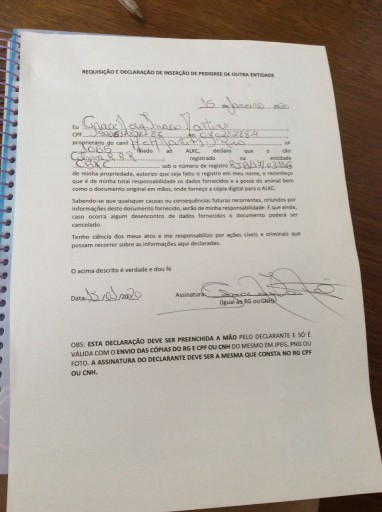 REQUISIÇÃO E DECLARAÇÃO DE INSERÇÃO DE PEDIGREE DE OUTRA ENTIDADE
15 de Janeiro 2020
Eu
CPF RG
proprietário do canil nº
3065 filiado ao ALKC, declaro que o cão
registrado na entidade
CBKC sob o número de registro
de minha propriedade, autorizo que seja feito o registro em meu nome, e reconheço
que é de minha total responsabilidade os dados fornecidos e a posse do animal bem
como o documento original em mãos, onde forneço a cópia digital para o ALKC.
Sabendo-se que quaisquer causas ou consequências futuras recorrentes, oriundos por
informações deste documento fornecido, serão de minha responsabilidade. E que ainda,
caso ocorra algum desencontro de dados fornecidos o documento poderá ser
cancelado.
Tenho ciência dos meus atos e me responsabilizo por ações cíveis e criminais que
possam recorrer sobre as informações aqui declaradas.
O acima descrito é verdade e dou fé
Data: 15/01/2020 Assinatura:
(Igual ao RG ou CNH)
OBS: ESTA DECLARAÇÃO DEVE SER PREENCHIDA A MÃO PELO DECLARANTE E SÓ É
VÁLIDA COM O ENVIO DAS CÓPIAS DO RG E CPF OU CNH DO MESMO EM JPEG, PNG OU
FOTO. A ASSINATURA DO DECLARANTE DEVE SER A MESMA QUE CONSTA NO RG CPF
OU CNH.